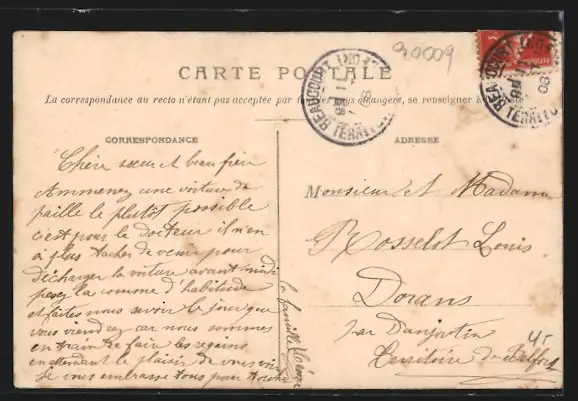 30009
CARTE POSTALE
La correspondance au recto n'étant pas acceptée par tous les pays étrangers, se renseigner à
BEAUCOURT
TERRIT
BEAUCOURT
TERRIT
CORRESPONDANCE
ADRESSE
Chère sœur et beau frère
Ammenez une voiture de
paille le plutot possible
c'est pour le Docteur il n'en
a plus tacher de venir pour
décharger la voiture avant midi
pesez la comme d'habitude
et faites nous savoir le jour que
vous viendrez car nous sommes
en train de faire les regains
en attendant le plaisir de vous voir
Je vous embrasse tous pour
la famille
Monsieur et Madame
Rosselot Louis
Dorans
par Danjoutin
Territoire de Belfort
4,-